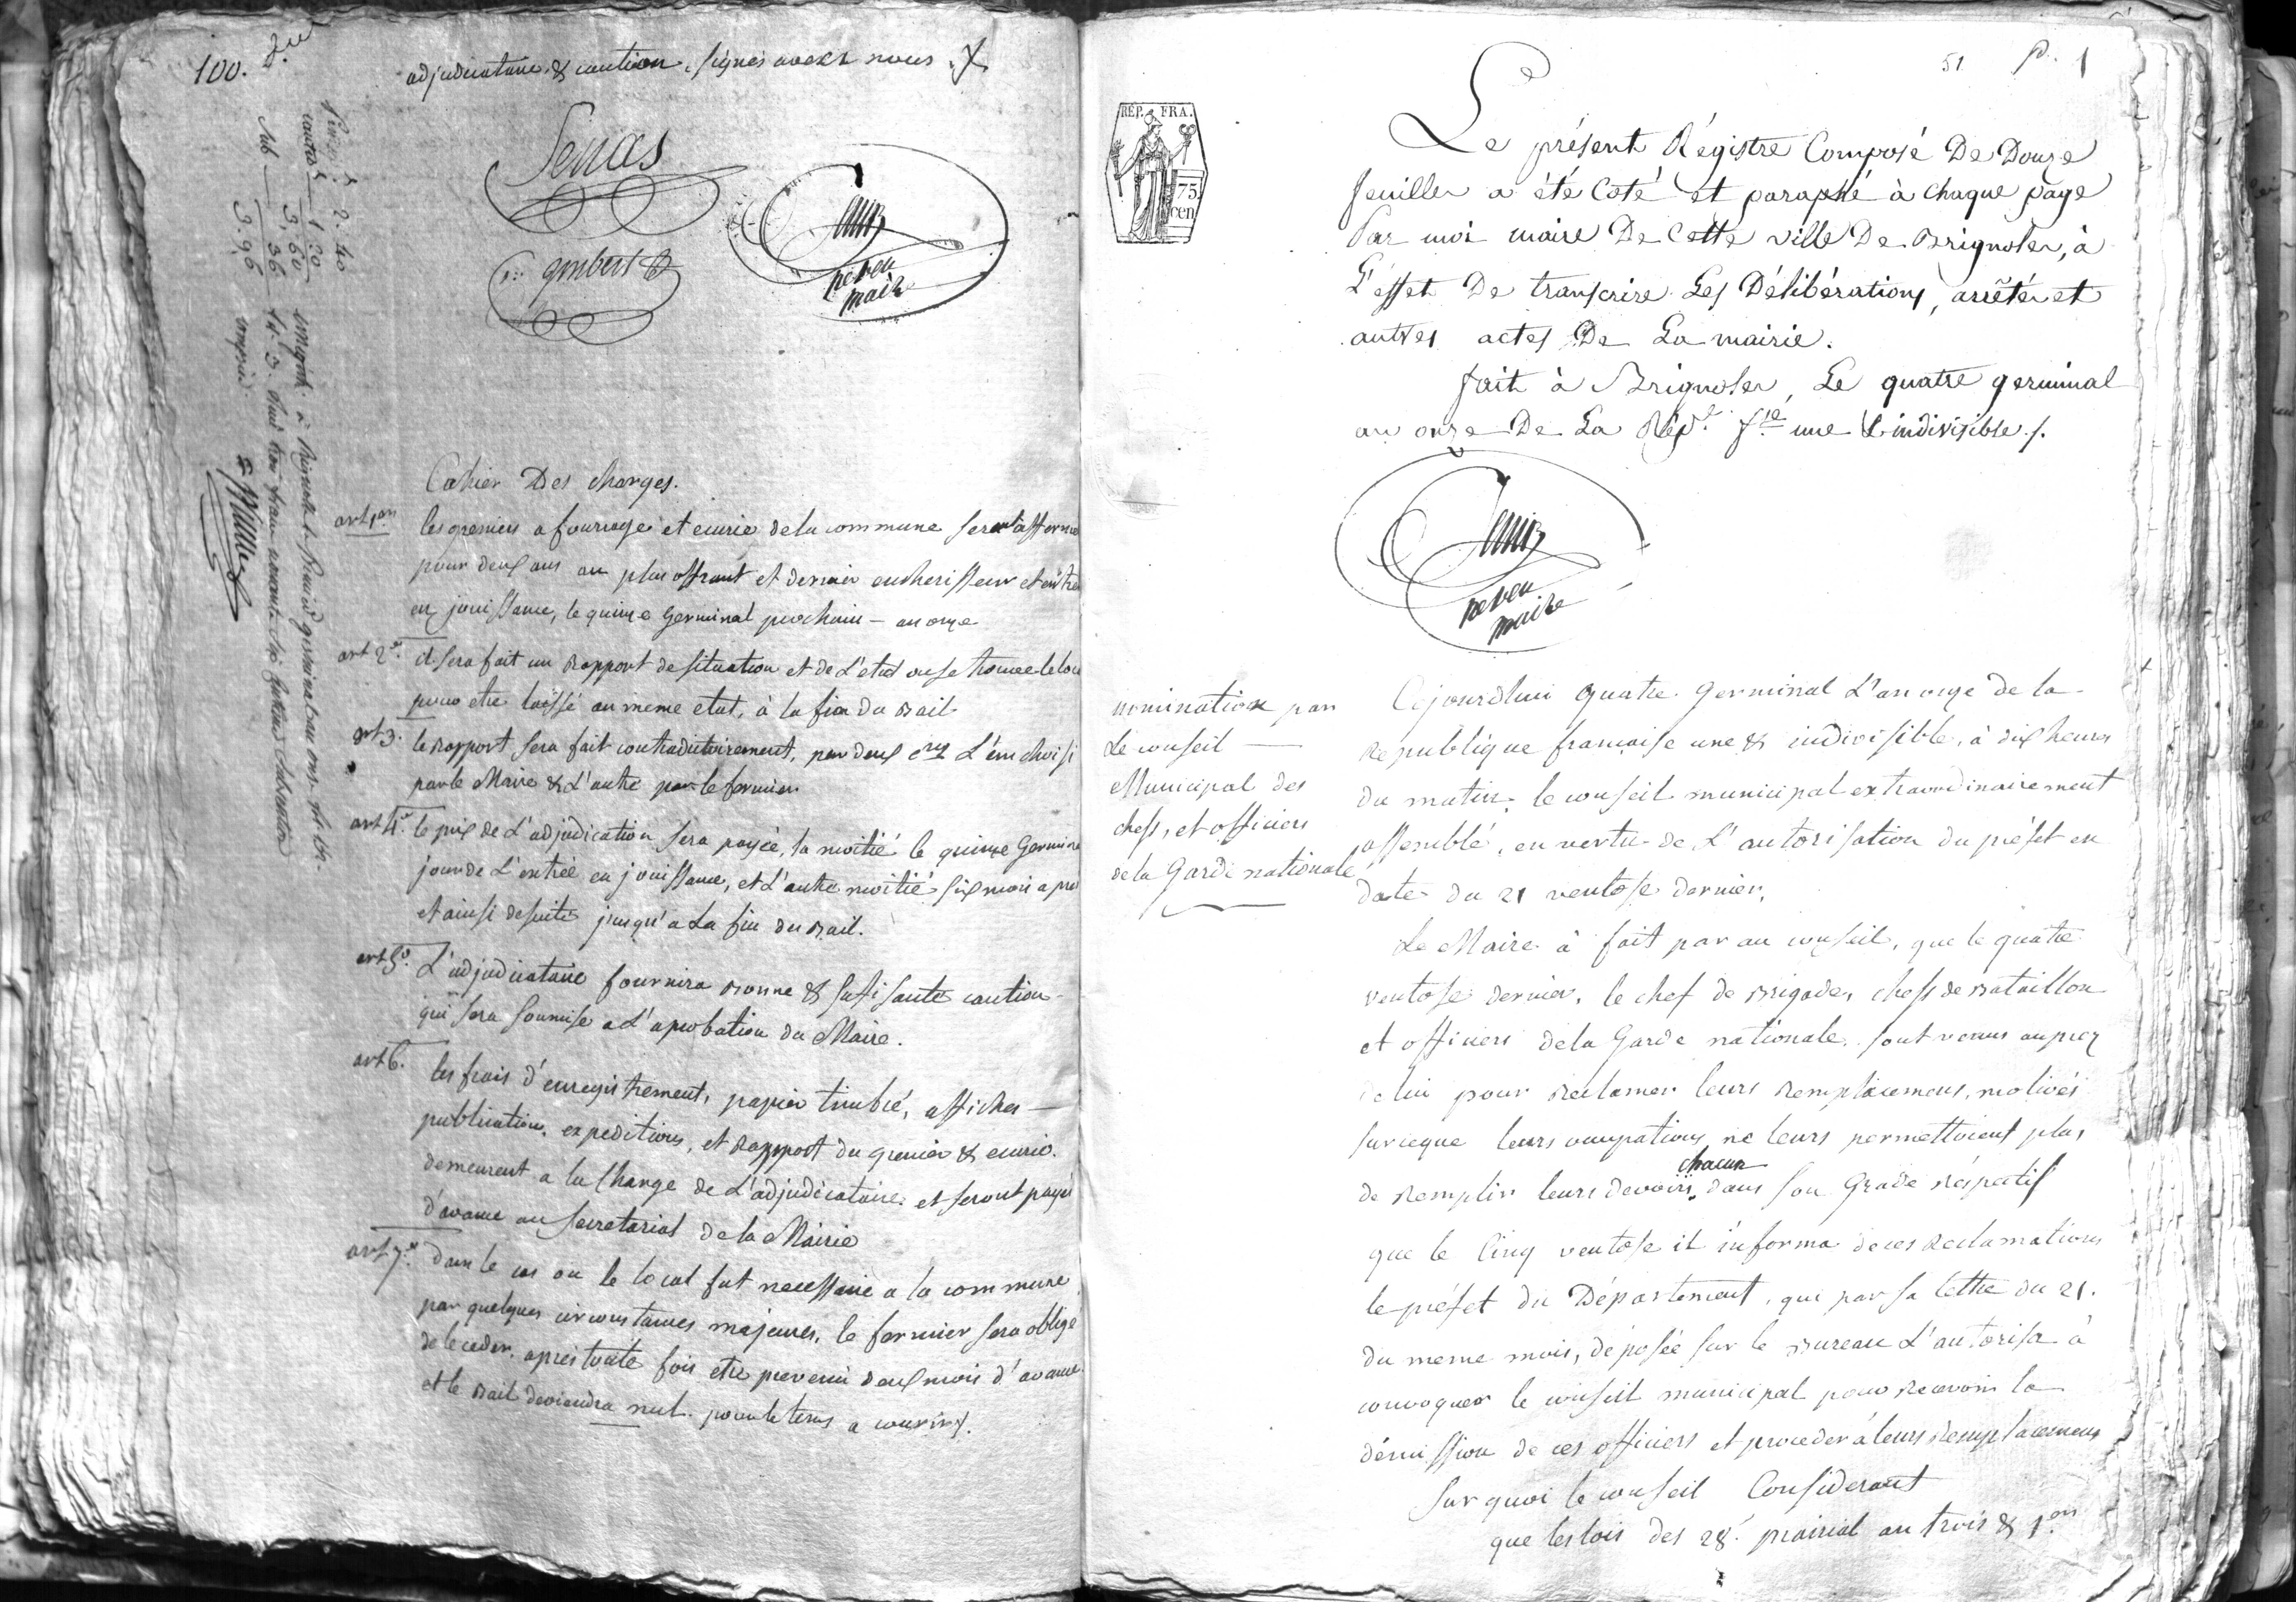 100.
adjudicataire & caution, signés avec nous
Senas
gmbert
neveu
maire
2. 40
1. 20
3. 60
36
3. 96
Cahier Des charges.
art 1er
les greniers a fourrage et ecurie de la commune seront affermé
pour deux ans au plus offrant et dernier encherisseur et entre
en jouissance, le quinze Germinal prochain - an onze
art 2e. il sera fait un rapport de situation et de L'etat ou se trouve le loc
pour etre laissé au meme etat, à la fin du Bail
art 3. le Rapport sera fait contradictoirement, par deux L'un choisi
par le Maire & L'autre par le fermier.
art 4e. le prix de L'adjudication sera payée, la moitié le quinze Germina
jour de L'entrée en jouissance, et L'autre moitié six mois apres
et ainsi desuite jusqu'a La fin du Bail.
art 5e. L'adjudicataire fournira Bonne & sufisante caution
qui sera soumise a L'aprobation du Maire.
art 6. les frais d'enregistrement, papier timbré, affiches
publication, expeditions, et Rapport du grenier & ecurie.
demeurent a la Charge de L'adjudicataire et seront payés
d'avance au secretariat de la Mairie
art 7e. dans le cas ou le local fut necessaire a la commune
par quelques circonstances majeures, le fermier sera obligé
de le ceder, apres toute fois etre prevenu deux mois d'avance
et le Bail deviendra nul pour le tems a courir /.
51 1
REP. FRA.
75
cen
Le présent Régistre Composé De Douze
feuilles a été Coté et paraphé à chaque page
Par moi maire De cette ville De Brignoles, à
L'effet De transcrire Les Délibérations, arrêtés et
autres actes De La mairie.
fait à Brignoles, Le quatre germinal
an onze De La Rép.e f.se une & indivisible /.
neveu
maire
nomination par
Le conseil
Municipal des
chefs, et officiers
de la Garde nationale
Cejourdhui quatre Germinal L'an onze de la
Republique francaise une & indivisible, à dix heures
du matin, le conseil municipal extraordinairement
assemblé, en vertu de L'autorisation du préfet en
date du 21 ventose dernier.
Le Maire à fait par au conseil, que le quatre
ventose dernier, le chef de Brigade, chefs de Bataillon
et officiers dela Garde nationale, sont venus auprez
de lui pour Reclamer leurs Remplacemens, motivés
sur ceque leurs occupations ne leurs permettoient plus
chacun
de Remplir leurs devoirs dans son Grade réspectif
que le Cinq ventose il informa deces Reclamations
le préfet du Département, qui par sa lettre du 21.
du meme mois, déposée sur le Bureau L'autorisa à
convoquer le conseil municipal pour Recevoir la
démission de ces officiers et proceder à leurs Remplacemens
Sur quoi le conseil Considerant
que les lois des 28. prairial an trois & 1er